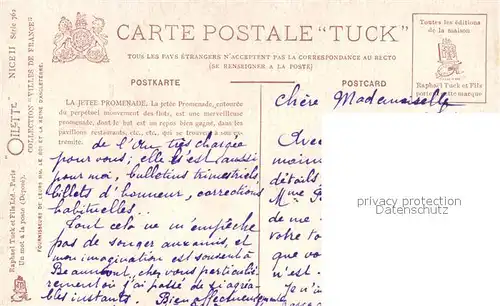 CARTE POSTALE "TUCK"
TOUS LES PAYS ÉTRANGERS N'ACCEPTENT PAS LA CORRESPONDANCE AU RECTO
(SE RENSEIGNER A LA POSTE)
POSTKARTE
POSTCARD
Toutes les éditions
de la maison
Raphaël Tuck et Fils
portent cette marque
Raphael Tuck et Fils Ltd.-Paris
Un mot à la poste (Déposé).
"OILETTE" NICE II Série 962
COLLECTION "VILLES DE FRANCE"
FOURNISSEURS DE LEURS MM. LE ROI ET LA REINE D'ANGLETERRE.
LA JETÉE PROMENADE. La jetée Promenade, entourée
du perpétuel mouvement des flots, est une merveilleuse
promenade, dont le but est un repos bien gagné, dans les
pavillons restaurants, etc., etc., qui se trouvent à son ex-
trémité.
de l'An très chargée
pour vous; elle l'est aussi
pour moi, bulletins trimestriels,
billets d'honneur, corrections
habituelles...
Tout cela ne m'empêche
pas de songer aux amis, et
mon imagination est souvent à
Beaumont, chez vous particuliè-
rement où j'ai passé de si agréa-
bles instants. Bien affectueusement
Chère Mademoiselle
Avec
main
détails
Mme
de me
votre to
que vo
n'est
J'ai
pas
privacy protection
Datenschutz